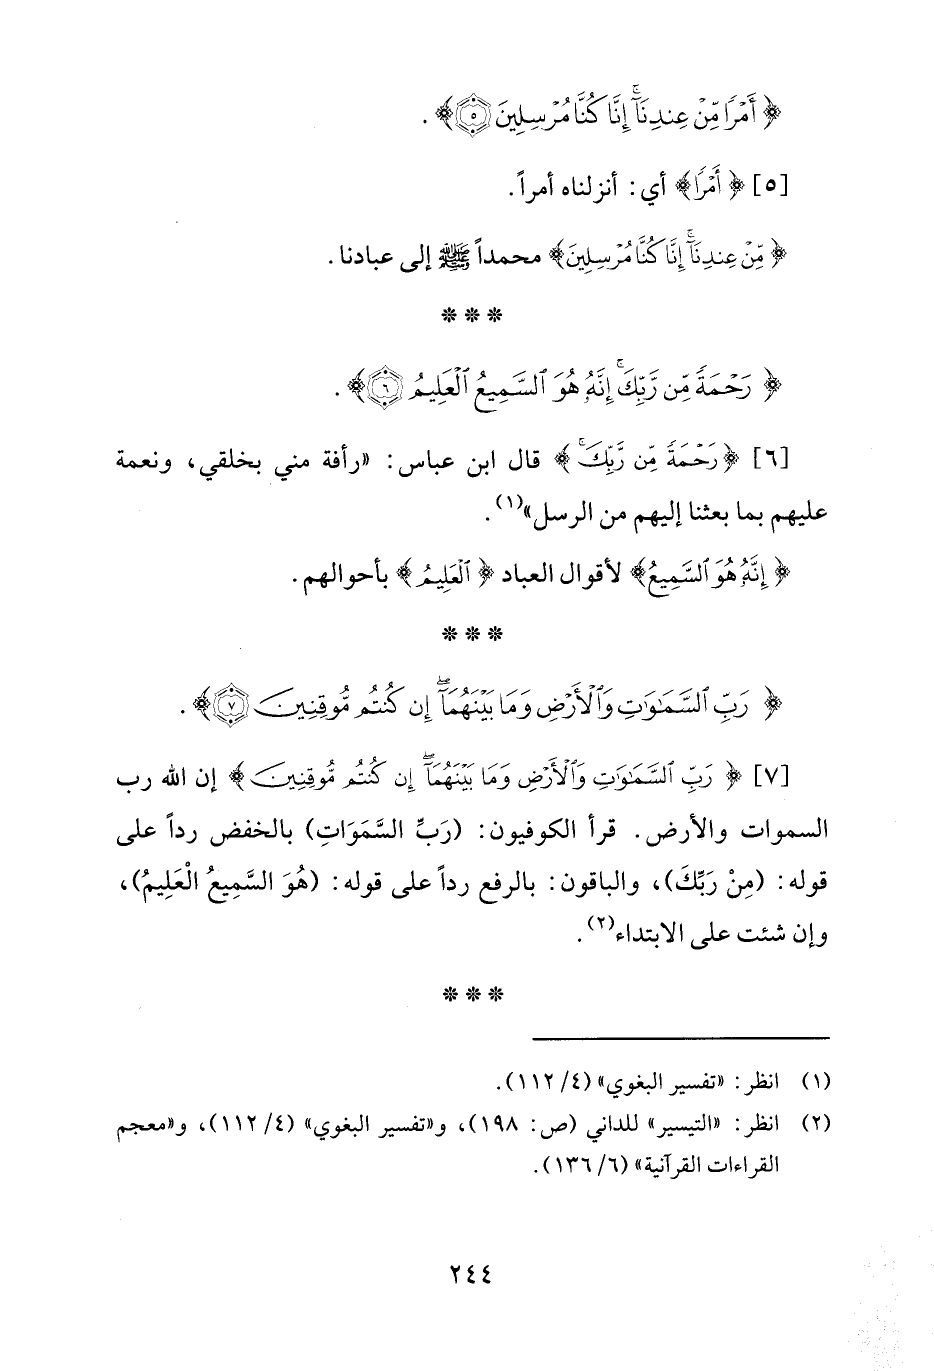 ﴿أَمْرًا مِّنْ عِندِنَآ ۚ إِنَّا كُنَّا مُرْسِلِينَ ۝٥﴾ .
[٥] ﴿أَمْرًا﴾ أي: أنزلناه أمراً.
﴿مِّنْ عِندِنَآ ۚ إِنَّا كُنَّا مُرْسِلِينَ﴾ محمداً ﷺ إلى عبادنا.
* * *
﴿رَحْمَةً مِّن رَّبِّكَ ۚ إِنَّهُۥ هُوَ ٱلسَّمِيعُ ٱلْعَلِيمُ ۝٦﴾ .
[٦] ﴿رَحْمَةً مِّن رَّبِّكَ ۚ﴾ قال ابن عباس: «رأفة مني بخلقي، ونعمة
عليهم بما بعثنا إليهم من الرسل»(١).
﴿إِنَّهُۥ هُوَ ٱلسَّمِيعُ﴾ لأقوال العباد ﴿ٱلْعَلِيمُ﴾ بأحوالهم.
* * *
﴿رَبِّ ٱلسَّمَٰوَٰتِ وَٱلْأَرْضِ وَمَا بَيْنَهُمَآ ۖ إِن كُنتُم مُّوقِنِينَ ۝٧﴾ .
[٧] ﴿رَبِّ ٱلسَّمَٰوَٰتِ وَٱلْأَرْضِ وَمَا بَيْنَهُمَآ ۖ إِن كُنتُم مُّوقِنِينَ﴾ إن الله رب
السموات والأرض. قرأ الكوفيون: (رَبِّ السَّمَوَاتِ) بالخفض رداً على
قوله: (مِنْ رَبِّكَ)، والباقون: بالرفع رداً على قوله: (هُوَ السَّمِيعُ الْعَلِيمُ)،
وإن شئت على الابتداء(٢).
* * *
(١) انظر: «تفسير البغوي» (٤/ ١١٢).
(٢) انظر: «التيسير» للداني (ص: ١٩٨)، و«تفسير البغوي» (٤/ ١١٢)، و«معجم
القراءات القرآنية» (٦/ ١٣٦).
٢٤٤